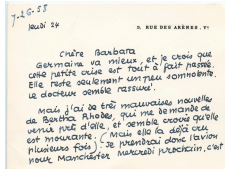 7-26-58
Jeudi 24
9, RUE DES ARÈNES. Vᵉ
Chère Barbara
Germaine va mieux, et je crois que
cette petite crise est tout à fait passée.
Elle reste seulement un peu somnolente.
Le docteur semble rassuré.
Mais j'ai de très mauvaises nouvelles
de Bertha Rhodes, qui me demande de
venir près d'elle, et semble croire qu'elle
est mourante. (Mais elle l'a déjà cru
plusieurs fois). Je prendrai donc l'avion
pour Manchester mercredi prochain, c'est